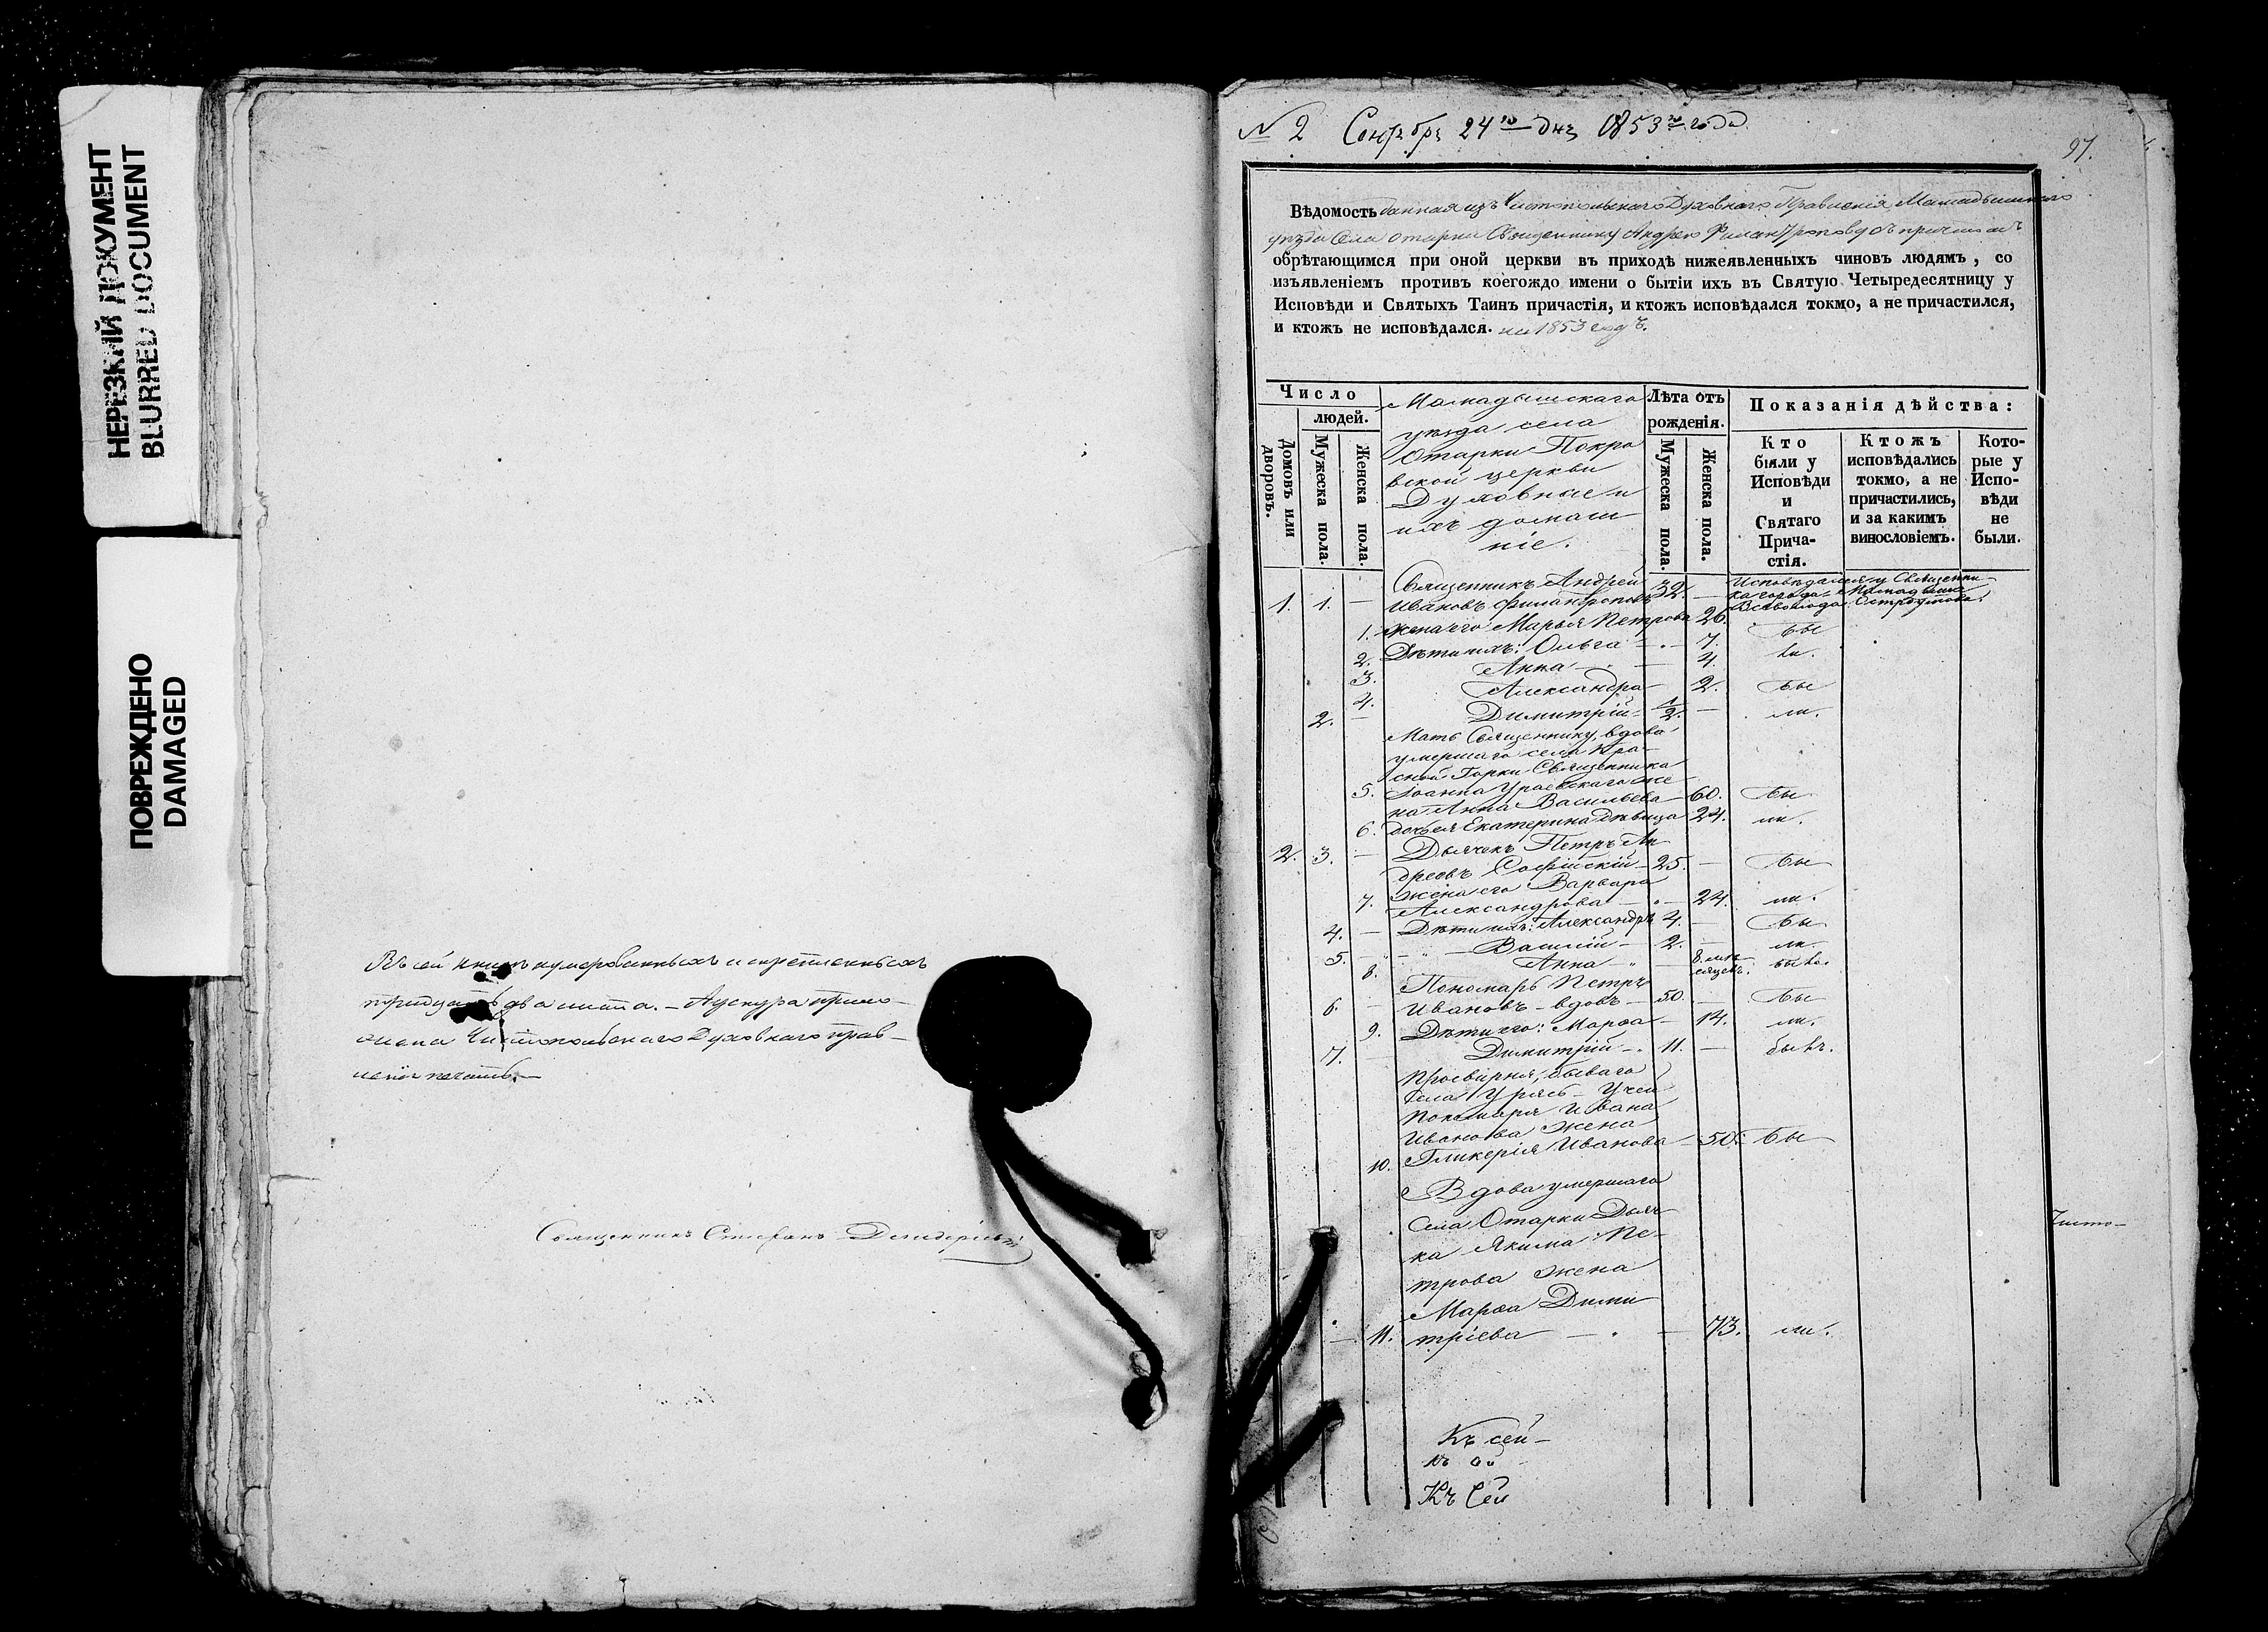 НЕРЕЗКИЙ ДОКУМЕНТ
BLURRED DOCUMENT
ПОВРЕЖДЕНО
DAMAGED
Въ сей книгѣ нумерованныхъ и скрѣпленныхъ
тридцать два листа. – А у снура прило–
жена Чистопольскаго Духовнаго прав–
ленія печать. –
Священникъ Стефанъ
№ 2 Сентября 24го дня 1853го года.
97.
Вѣдомость данная изъ Чистопольскаго Духовнаго Правленія, Мамадышскаго
уѣзда Села Отарки Священнику Андрею Филантропову съ причтомъ
обрѣтающимся при оной церкви въ приходѣ нижеявленныхъ чиновъ людямъ, со
изъявленіемъ противъ коегождо имени о бытіи ихъ въ Святую Четыредесятницу у
Исповѣди и Святыхъ Таинъ причастія, и ктожъ исповѣдался токмо, а не причастился,
и ктожъ не исповѣдался. на 1853 годъ.
Число
людей.
Домовъ или дворовъ.
Мужеска пола.
Женска пола.
Мамадышскаго
уѣзда села
Отарки Покро
вской церкви
Духовные и
ихъ домаш
ніе.
Лѣта отъ
рожденія.
Мужеска пола.
Женска пола.
Показанія дѣйства:
Кто
были у
Исповѣди
и
Святаго
Прича-
стія.
Ктожъ
исповѣдались
токмо, а не
причастились,
и за какимъ
винословіемъ.
Кото-
рые у
Испо-
вѣди
не
были.
Священникъ Андрей
1. 1. — Ивановъ Филантроповъ 32. —
Исповѣдался у Священни–
ка города Мамадыша
Всеволода Остроумова.
1. Жена его Марья Петрова 26. бы
2. Дѣти ихъ: Ольга — 7. ли.
3. Анна — 4.
4. Александра 2. бы
2. — Димитрій 1/2. — ли.
Мать Священнику, вдова
умершаго села Кра–
сной Горки Священника
Іоанна Ураевскаго же–
5. на Анна Васильева — 60. бы
6. дочь ея Екатерина дѣвица 24. ли.
2. 3. — Дьячекъ Петръ Ан
дреевъ Софійскій — 25. — бы
Жена его Варвара
7. Александрова — 24. ли.
4. — Дѣти ихъ: Александръ 4. — бы
5. — Василій — 2. — ли.
8. Анна — 8. мѣ
сяцевъ. была.
Пономарь Петръ
6. — Ивановъ — вдовъ — 50. — бы
9. Дѣти его: Марѳа — 14. ли.
7. — Димитрій — 11. — бывъ.
Просвирня, бывшаго
Села Урясь – Учей
Пономаря Ивана
Иванова жена
10. Гликерія Иванова — 50. бы
Вдова умершаго
Села Отарки Дьяч–
ка Якима Пе–
трова жена
Марѳа Дими
— 11. тріева — 73. ли.
Чисто–
Къ сей –
Къ Сей